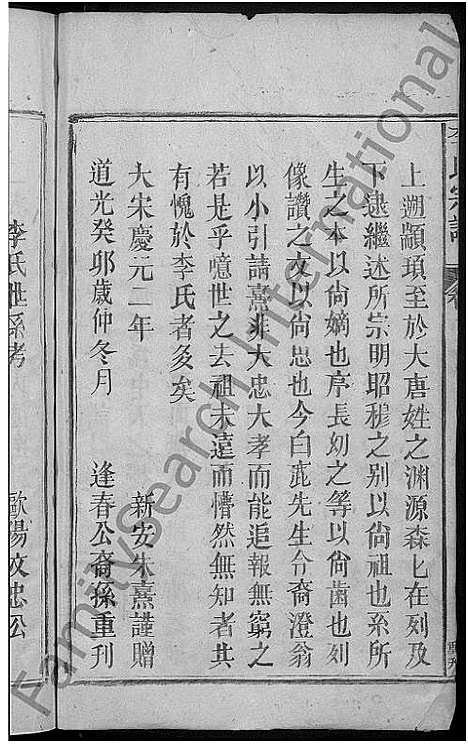 李氏宗譜
上遡顓頊至於大唐姓之淵源森匕在列及
下逮繼述所宗明昭穆之别以尙祖也系所
生之本以尙嫡也序長幼之等以尙齒也列
像讚之文以尙思也今白鹿先生令裔澄翁
以小引請熹非大忠大孝而能追報無窮之
若是乎噫世之去祖未遠而懵然無知者其
有愧於李氏者多矣
大宋慶元二年　新安朱熹謹贈
道光癸卯歲仲冬月　逢春公裔孫重刊
李氏世系考　歐陽文忠公
FamilySearch International